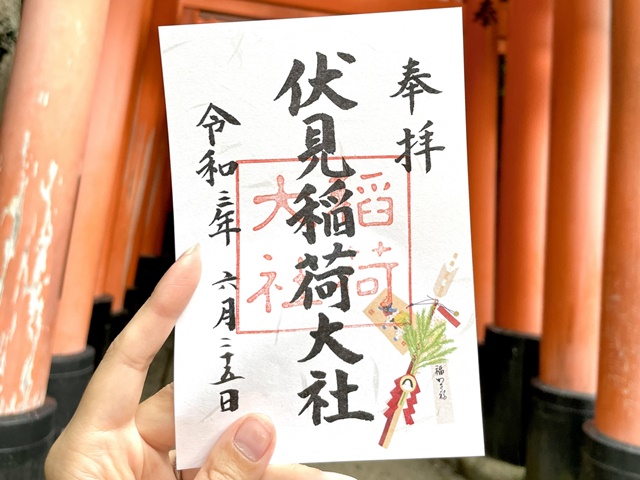 奉拝
伏見稲荷大社
稲荷大社
令和三年 六月二十五日